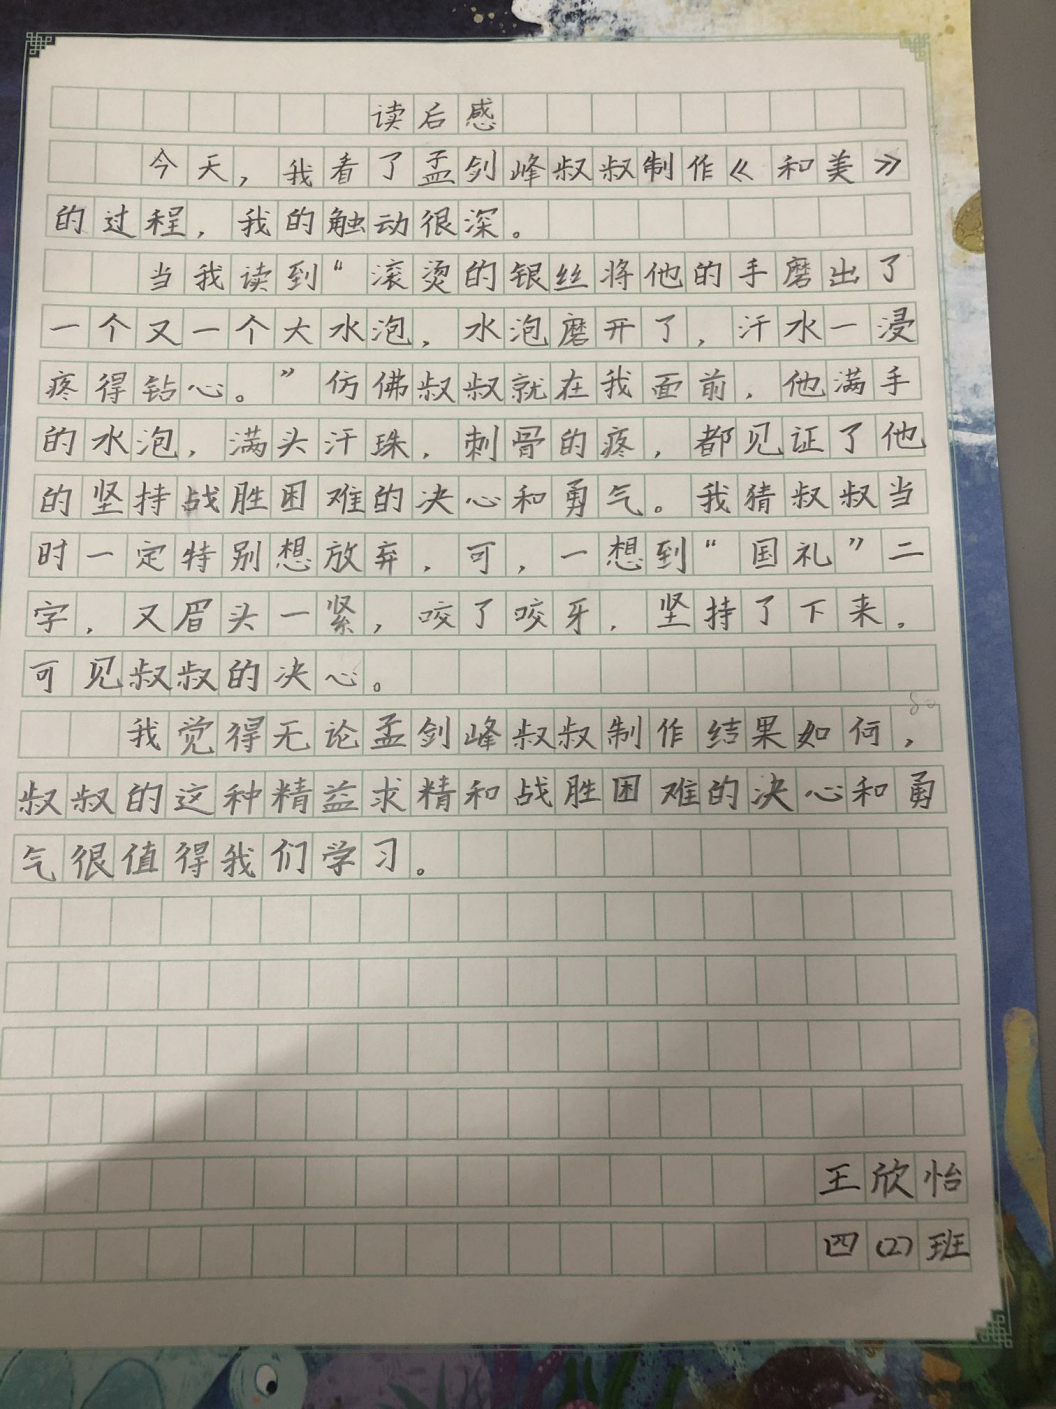 读后感
今天，我看了孟剑峰叔叔制作《和美》
的过程，我的触动很深。
当我读到“滚烫的银丝将他的手磨出了
一个又一个大水泡，水泡磨开了，汗水一浸
疼得钻心。”仿佛叔叔就在我面前，他满手
的水泡，满头汗珠，刺骨的疼，都见证了他
的坚持战胜困难的决心和勇气。我猜叔叔当
时一定特别想放弃，可，一想到“国礼”二
字，又眉头一紧，咬了咬牙，坚持了下来，
可见叔叔的决心。
我觉得无论孟剑峰叔叔制作结果如何，
叔叔的这种精益求精和战胜困难的决心和勇
气很值得我们学习。
王欣怡
四(2)班